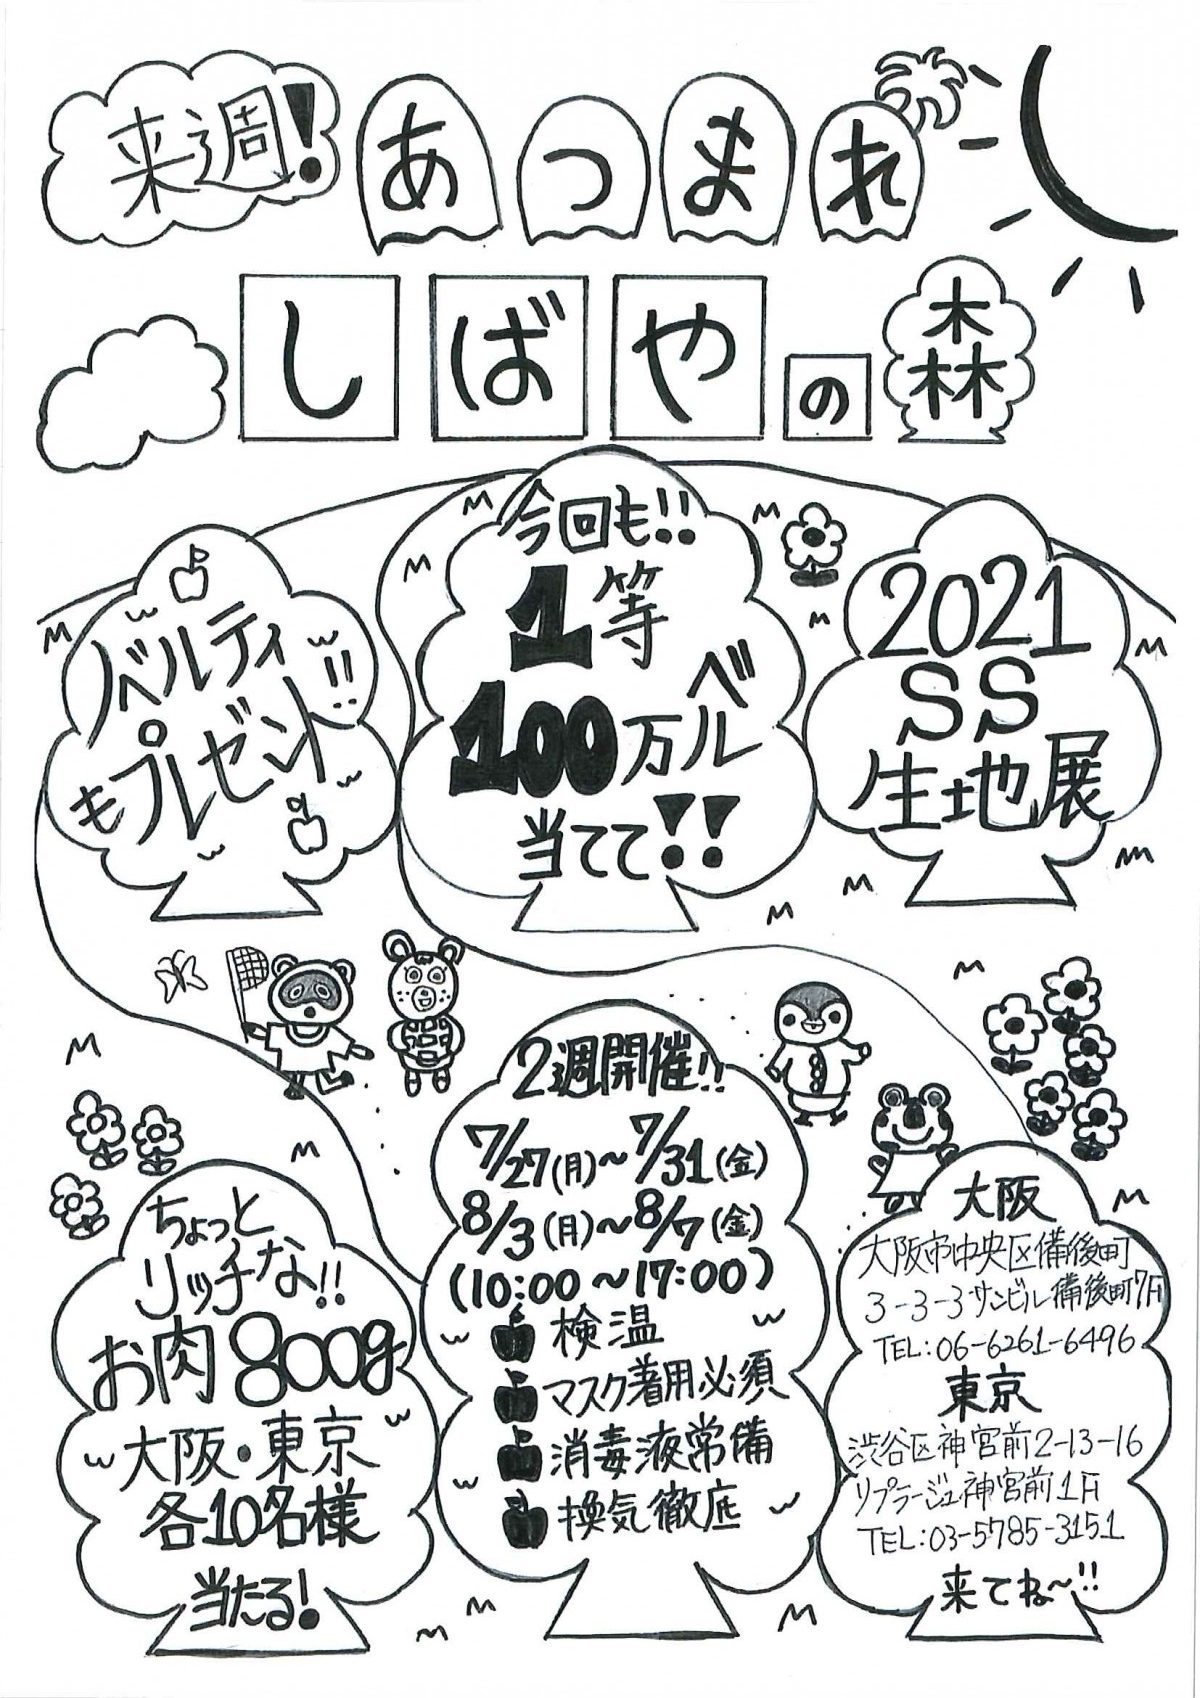 来週!
あつまれ
しばやの森
ノベルティ
もプレゼント!!
今回も!!
1等
100万ベル
当てて!!
2021
SS
生地展
ちょっと
リッチな!!
お肉800g
大阪・東京
各10名様
当たる!
2週開催!!
7/27(月)~7/31(金)
8/3(月)~8/7(金)
(10:00~17:00)
検温
マスク着用必須
消毒液常備
換気徹底
大阪
大阪市中央区備後町
3-3-3サンビル備後町7F
TEL:06-6261-6496
東京
渋谷区神宮前2-13-16
リプラージュ神宮前1F
TEL:03-5785-3151
来てね~!!